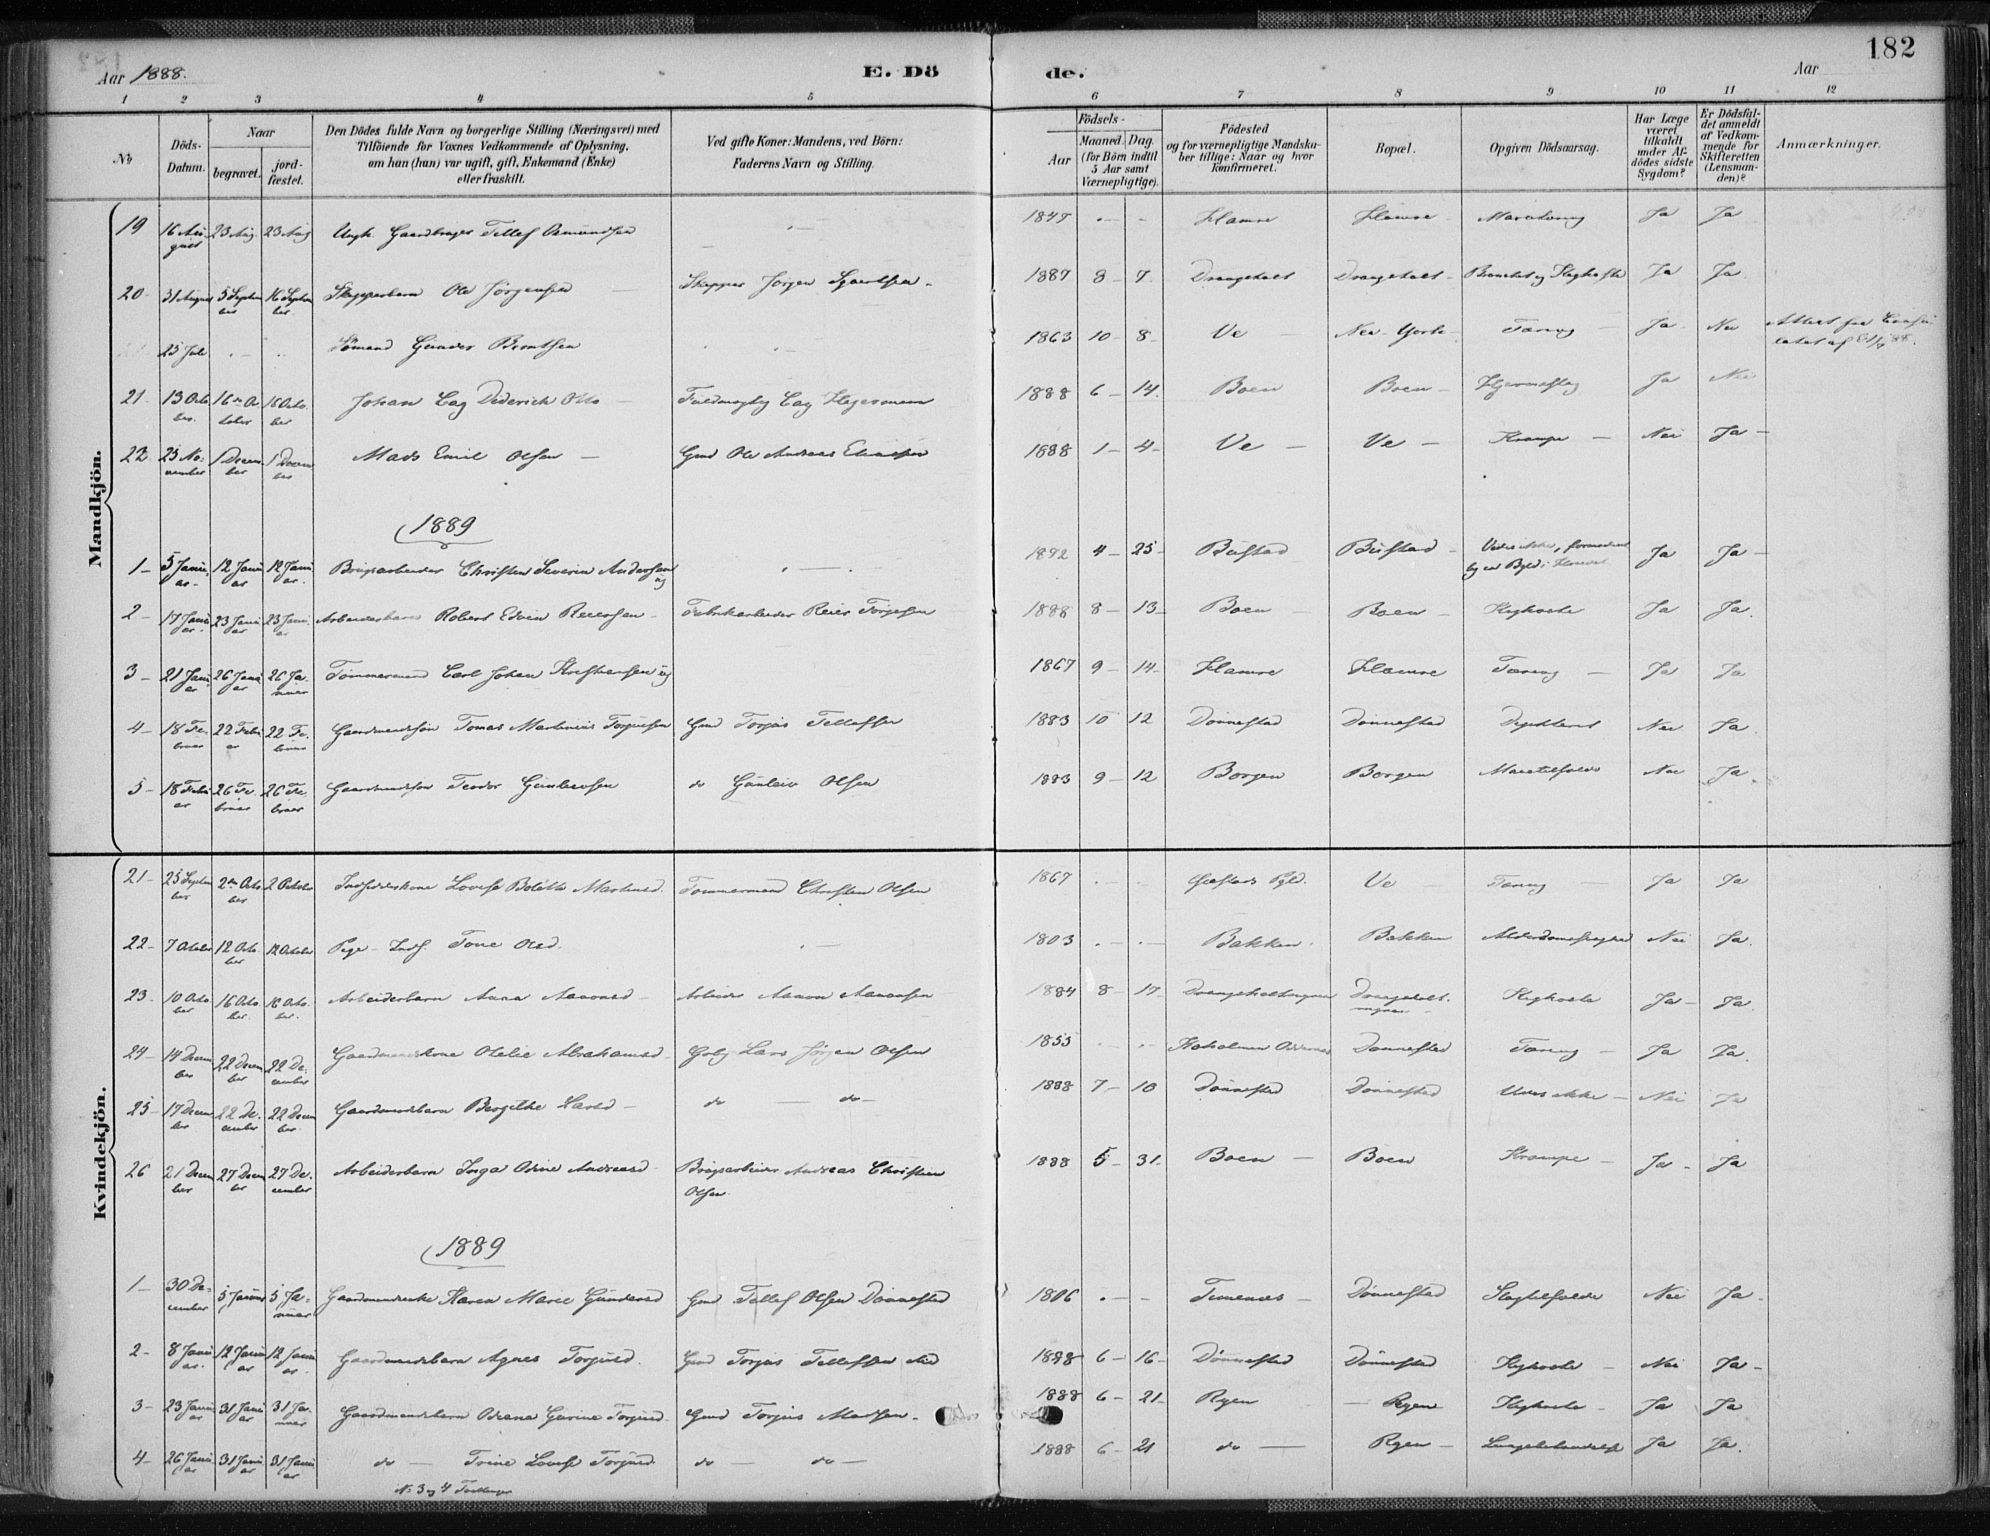 182
Aar 1888. E. Dö de. Aar
1 2 3 4 5 6 7 8 9 10 11 12
No
Döds-Datum.
Naar
begravet.
jord-fæstet.
Den Dödes fulde Navn og borgerlige Stilling (Næringsvei) med
Tilföiende for Voxnes Vedkommende af Oplysning,
om han (hun) var ugift, gift, Enkemand (Enke)
eller fraskilt.
Ved gifte Koner: Mandens, ved Börn:
Faderens Navn og Stilling.
Födsels-
Aar
Maaned. Dag.
(for Börn indtil
5 Aar samt
Værnepligtige).
Födested
og for værnepligtige Mandska-
ber tillige: Naar og hvor
konfirmeret.
Bopæl.
Opgiven Dödsaarsag.
Har Læge
været
tilkaldt
under Af-
dödes sidste
Sygdom?
Er Dödsfal-
det anmeldt
af Vedkom-
mende for
Skifteretten
(Lensman-
den)?
Anmærkninger.
Mandkjön.
19 16 August 23 Aug. 23 Aug Ungk. Gaardbruger Tellef Osmundsen 1847 Hamre Hamre Ja Ja
20 31 August 5 September 16 September Skipperbarn Ole Jörgensen Skipper Jörgen 1887 8 7 Drangeholt Drangeholt Ja Ja
25 Juli Sömand Gunder Berntsen 1863 10 8 Ve New York Tæring Ja Nei Attest fra
21 13 October 16de October 16 October Johan Cay Diderich Otto Fuldmægtig Cay Hegermann 1888 6 14 Boen Boen Ja Nei
22 25 November 1 December 1 December Mads Emil Olsen Gmd Ole Andreas 1888 1 4 Ve Ve Krampe Nei Ja
1889
1 5 Januar 12 Januar 12 Januar Brugsarbeider Christen Severin Andersen ug 4 25 Bustad Bustad Ja Ja
2 17 Januar 23 Januar 23 Januar Arbeiderbarn Robert Edvin Reiersen Fabrikarbeider Reier Torgersen 1888 8 13 Boen Boen Kighoste Ja Ja
3 21 Januar 26 Januar 26 Januar Tömmermand Carl Johan Kristiansen ug 1867 9 14 Hamre Hamre Tæring Ja Ja
4 18 Februar 22 Februar 22 Februar Gaardmandssön Tomas Martinius Torjussen Gmd Torjus Tellefsen 1883 10 12 Dönnestad Dönnestad Nei Ja
5 18 Februar 26 Februar 26 Februar Gaardmandssön Teodor Gunleivsen do Gunleiv Olsen 1883 9 12 Borgen Borgen Nei Ja
Kvindekjön.
21 25 September 2den October 2 October Lovise Bolette Martinsd. Tömmermand Christen Olsen 1867 Ve Tæring Ja Ja
22 7 October 12 October 12 October Pige Inds. Tone Olsd. 1803 Bakken Bakken Alderdomssvaghed Nei Ja
23 10 October 16 October 16 October Arbeiderbarn Anna Aanonsd Arbeider Aanon Aanonsen 1884 8 17 Kighoste Ja Ja
24 14 December 22 December 22 December Gaardmandskone Otelie Abrahamsd. Gbrg. Lars Jörgen Olsen 1855 Dönnestad Tæring Ja Ja
25 17 December 22 December 22 December Gaardmandsbarn Bergithe Larsd do do 1888 7 10 Dönnestad Dönnestad Vides ikke Nei Ja
26 21 December 27 December 27 December Arbeiderbarn Inga Andreasd Brugsarbeider Andreas Christian Olsen 1888 5 31 Boen Boen Krampe Ja Ja
1889
1 30 December 5 Januar 5 Januar Gaardmandsenke Karen Marie Gundersd Gmd Tellef Olsen Dönnestad 1806 Timenes Dönnestad Slagtilfælde Nei Ja
2 8 Januar 12 Januar 12 Januar Gaardmandsbarn Agnes Torjusd. Gmd Torjus Tellefsen 1888 6 16 Dönnestad Dönnestad Kighoste Nei Ja
3 23 Januar 31 Januar 31 Januar Gaardmandsbarn Gurine Torjusd. Gmd Torjus Madsen 1888 6 21 Ryen Ryen Kighoste Ja Ja
4 26 Januar 31 Januar 31 Januar do Trine Lovise Torjusd. do do 1888 6 21 do Ryen Lungebetændelse Ja Ja
N. 3 og 4 Tvillinger